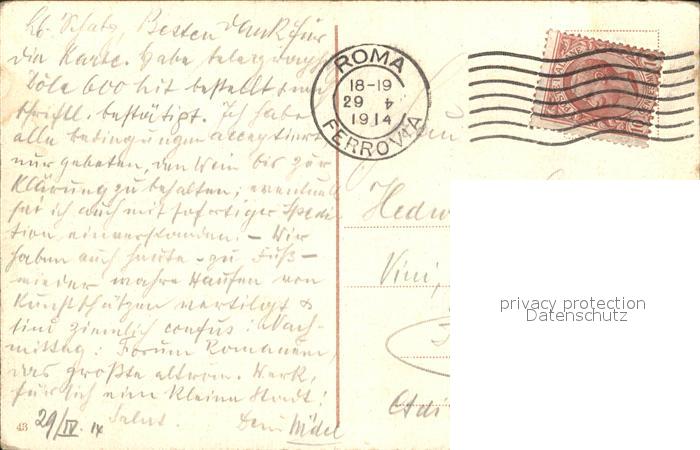 Lb. Schatz, Besten Dank für
die Karte. Habe telegraphisch
Dôle 600 hit bestellt und
schriftl. bestätigt. Ich habe
alle bedingungen acceptiert
nur gebeten, den Wein bis zur
Klärung zu behalten, eventuell
sei ich auch mit sofortiger Spedi
tion einverstanden. – Wir
haben auch heute – zu Fuß –
wieder wahre Haufen von
Kunstschätzen vertilgt &
sind ziemlich confus: Nach-
mittag: Forum Romanum,
das größte altröm. Werk,
für sich eine kleine Stadt!
Salut. Dein
29/IV. 14
43
ROMA
18-19
29 4
1914
FERROVIA
Hedw
Vini,
privacy protection
Datenschutz